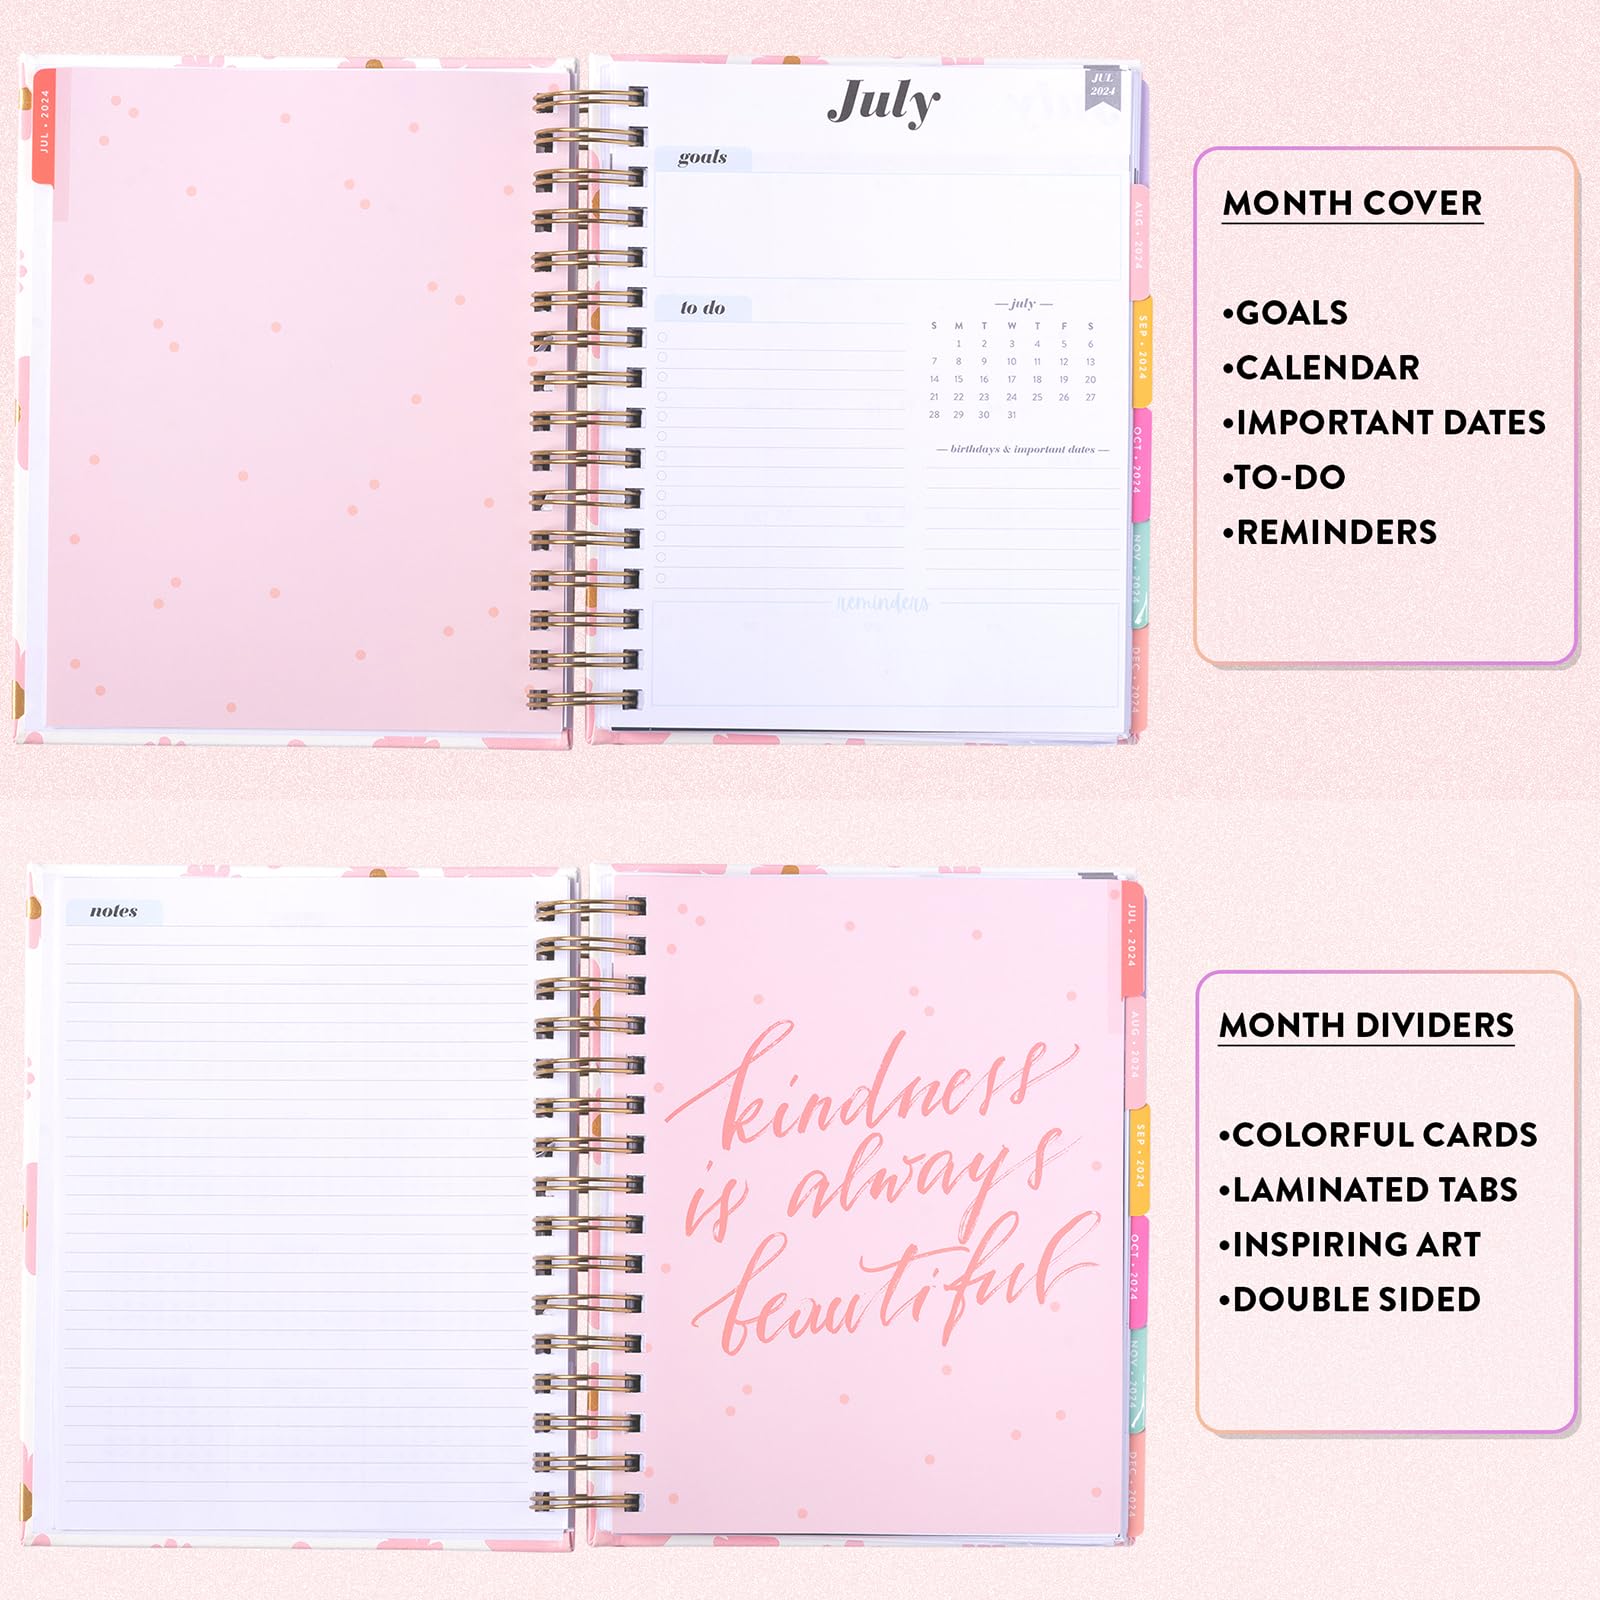 JUL • 2024
July
JUL
2024
goals
to do
— july —
S M T W T F S
1 2 3 4 5 6
7 8 9 10 11 12 13
14 15 16 17 18 19 20
21 22 23 24 25 26 27
28 29 30 31
— birthdays & important dates —
reminders
AUG • 2024
SEP • 2024
OCT • 2024
NOV • 2024
DEC • 2024
MONTH COVER
•GOALS
•CALENDAR
•IMPORTANT DATES
•TO-DO
•REMINDERS
notes
kindness
is always
beautiful
JUL • 2024
AUG • 2024
SEP • 2024
OCT • 2024
NOV • 2024
DEC • 2024
MONTH DIVIDERS
•COLORFUL CARDS
•LAMINATED TABS
•INSPIRING ART
•DOUBLE SIDED